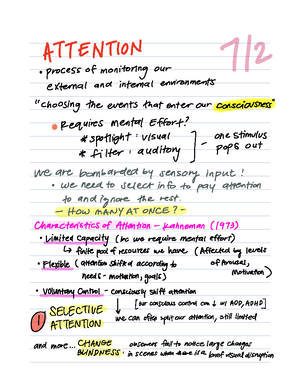 ATTENTION
7/2
• process of monitoring our
external and internal environments
"choosing the events that enter our consciousness"
• Requires Mental Effort?
* spotlight : visual
* filter : auditory
one stimulus
pops out
We are bombarded by sensory input!
• We need to select info to pay attention
to and ignore the rest.
- HOW MANY AT ONCE? -
Characteristics of Attention - Kahneman (1973)
• Limited Capacity (bc we require mental effort)
↳ finite pool of resources we have (Affected by levels
of Arousal,
Motivation)
• Flexible (attention shifted according to
needs - motivation, goals)
• Voluntary Control - consciously shift attention
[our conscious control can ↓ w/ ADD, ADHD]
! SELECTIVE
ATTENTION
we can often split our attention, still limited
and more... CHANGE
BLINDNESS:
observers fail to notice large changes
in scenes when there is a brief visual disruption